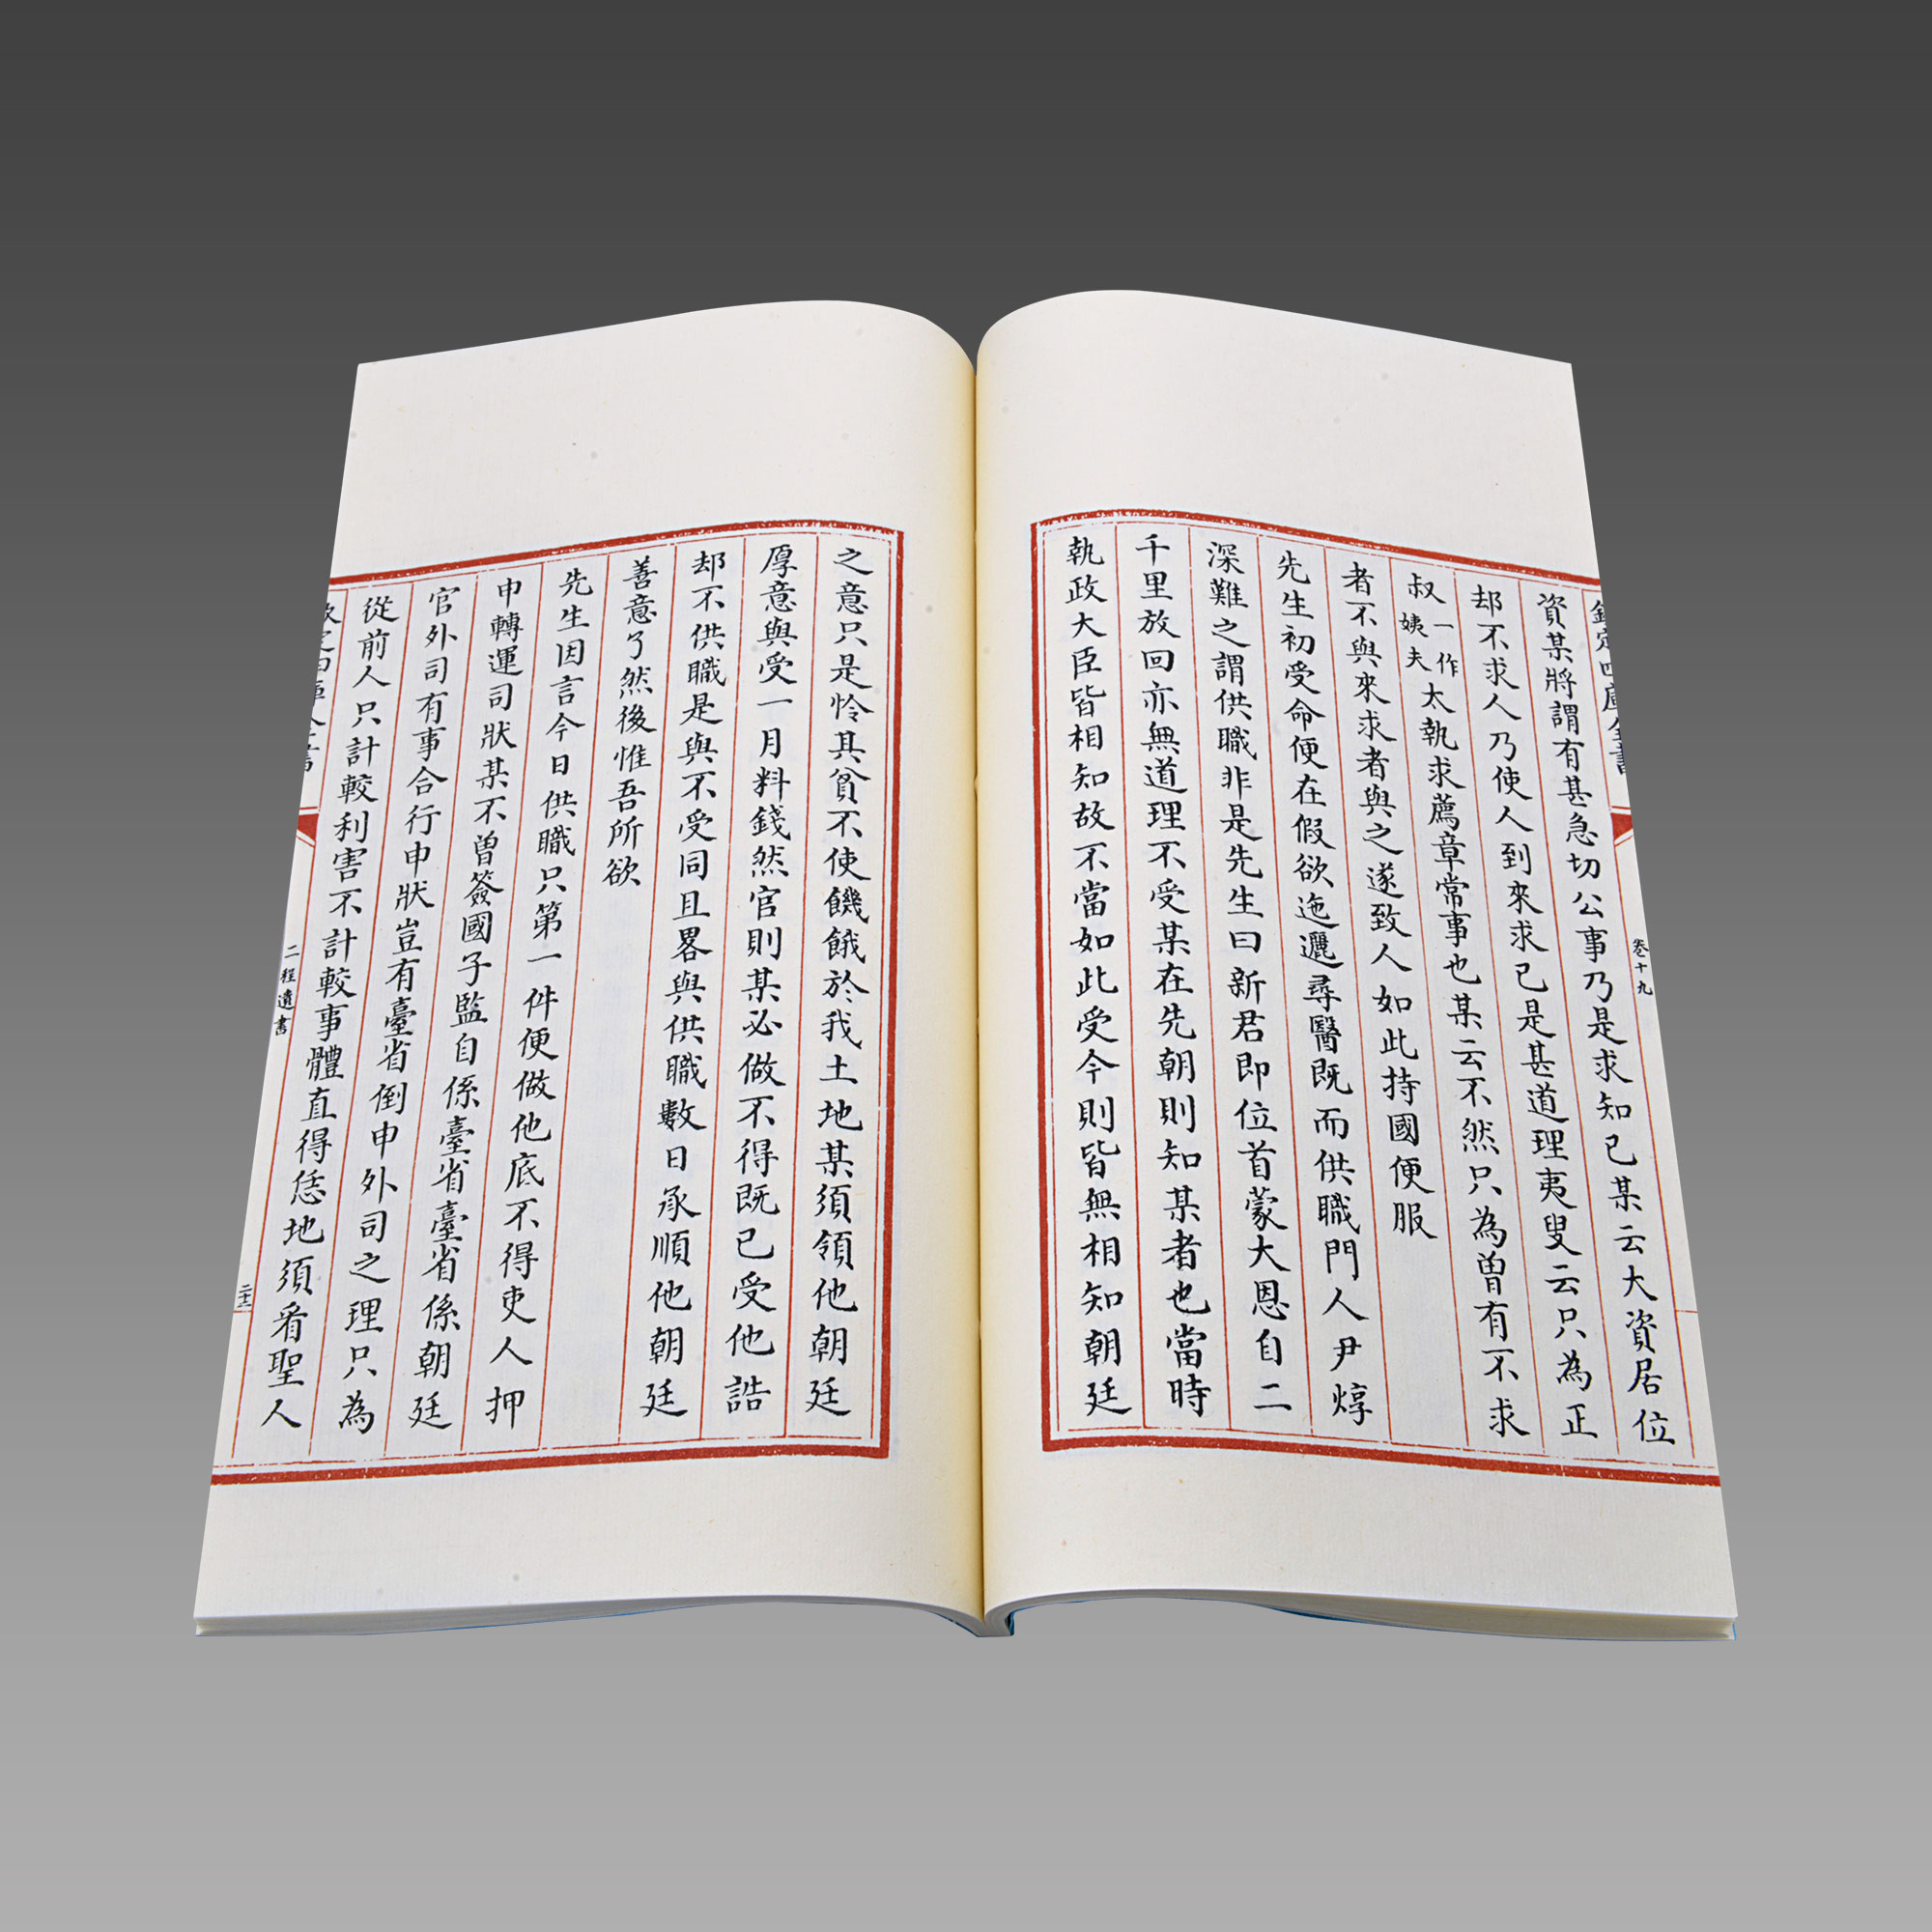 欽定四庫全書
卷十九
資某將謂有甚急切公事乃是求知已某云大資居位
却不求人乃使人到來求已是甚道理夷叟云只為正
叔一作姨夫太執求薦章常事也某云不然只為曾有不求
者不與來求者與之遂致人如此持國便服
先生初受命便在假欲迤邐尋醫既而供職門人尹焞
深難之謂供職非是先生曰新君即位首蒙大恩自二
千里放回亦無道理不受某在先朝則知某者也當時
執政大臣皆相知故不當如此受今則皆無相知朝廷
之意只是怜其貧不使饑餓於我土地某須領他朝廷
厚意與受一月料錢然官則某必做不得既已受他誥
却不供職是與不受同且畧與供職數日承順他朝廷
善意了然後惟吾所欲
先生因言今日供職只第一件便做他底不得吏人押
申轉運司狀某不曾簽國子監自係臺省臺省係朝廷
官外司有事合行申狀豈有臺省倒申外司之理只為
從前人只計較利害不計較事體直得恁地須看聖人
二程遺書